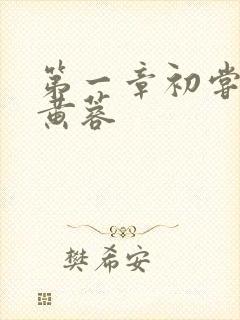 第一章初尝
黄蓉
樊希安